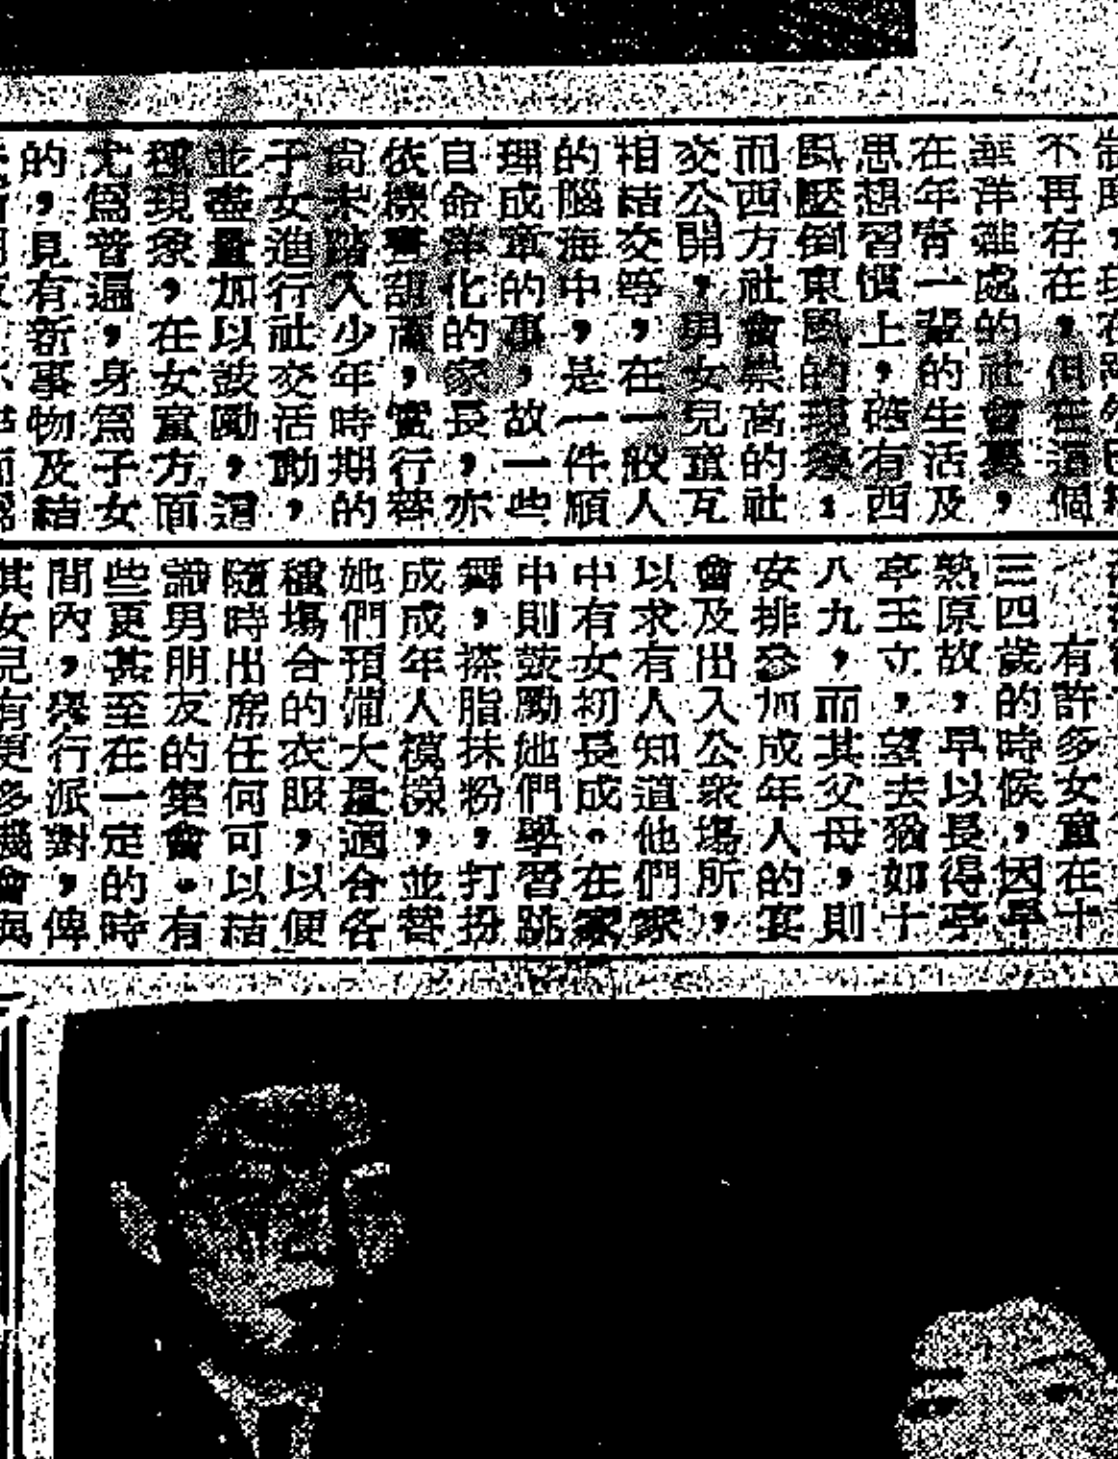 不再存在,但在這個
華洋雜處的社會裏,
在年青一輩的生活及
思想習慣上,確有西
風壓倒東風的現象;
而西方社會崇高的社
交公開,男女兒童互
相結交等,在一般人
的腦海中,是一件順
理成章的事,故一些
自命洋化的家長,亦
依樣畫葫蘆,實行替
尚未踏入少年時期的
子女進行社交活動,
並盡量加以鼓勵,這
種現象,在女童方面
尤為普遍,身為子女
的,見有新事物及結
有許多女童在十
三四歲的時候,因早
熱原故,早以長得亭
亭玉立,望去猶如十
八九,而其父母,則
安排參加成年人的宴
會及出入公衆場所,
以求有人知道他們家
中有女初長成。在家
中則鼓勵她們學習跳
舞,搽脂抹粉,打扮
成成年人模樣,並替
她們預備大量適合各
種場合的衣服,以便
隨時出席任何可以結
識男朋友的集會。有
些更甚至在一定的時
間內,舉行派對,俾
其女兒有更多機會與